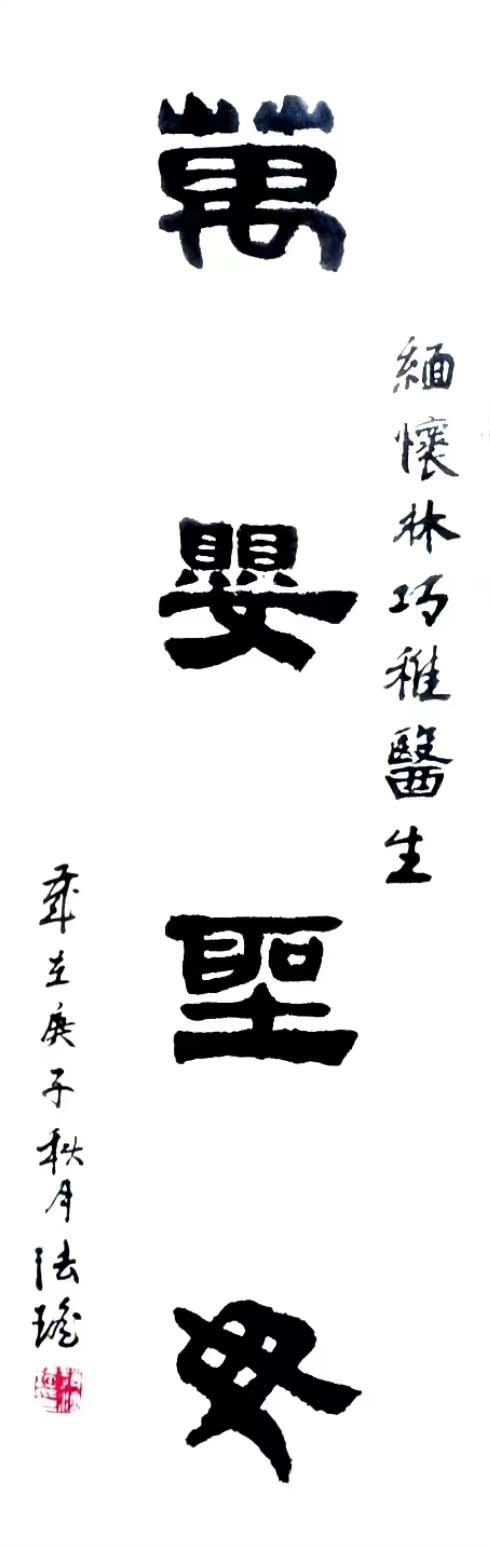 緬懷林巧稚醫生
萬嬰聖母
歲在庚子秋月法瑤